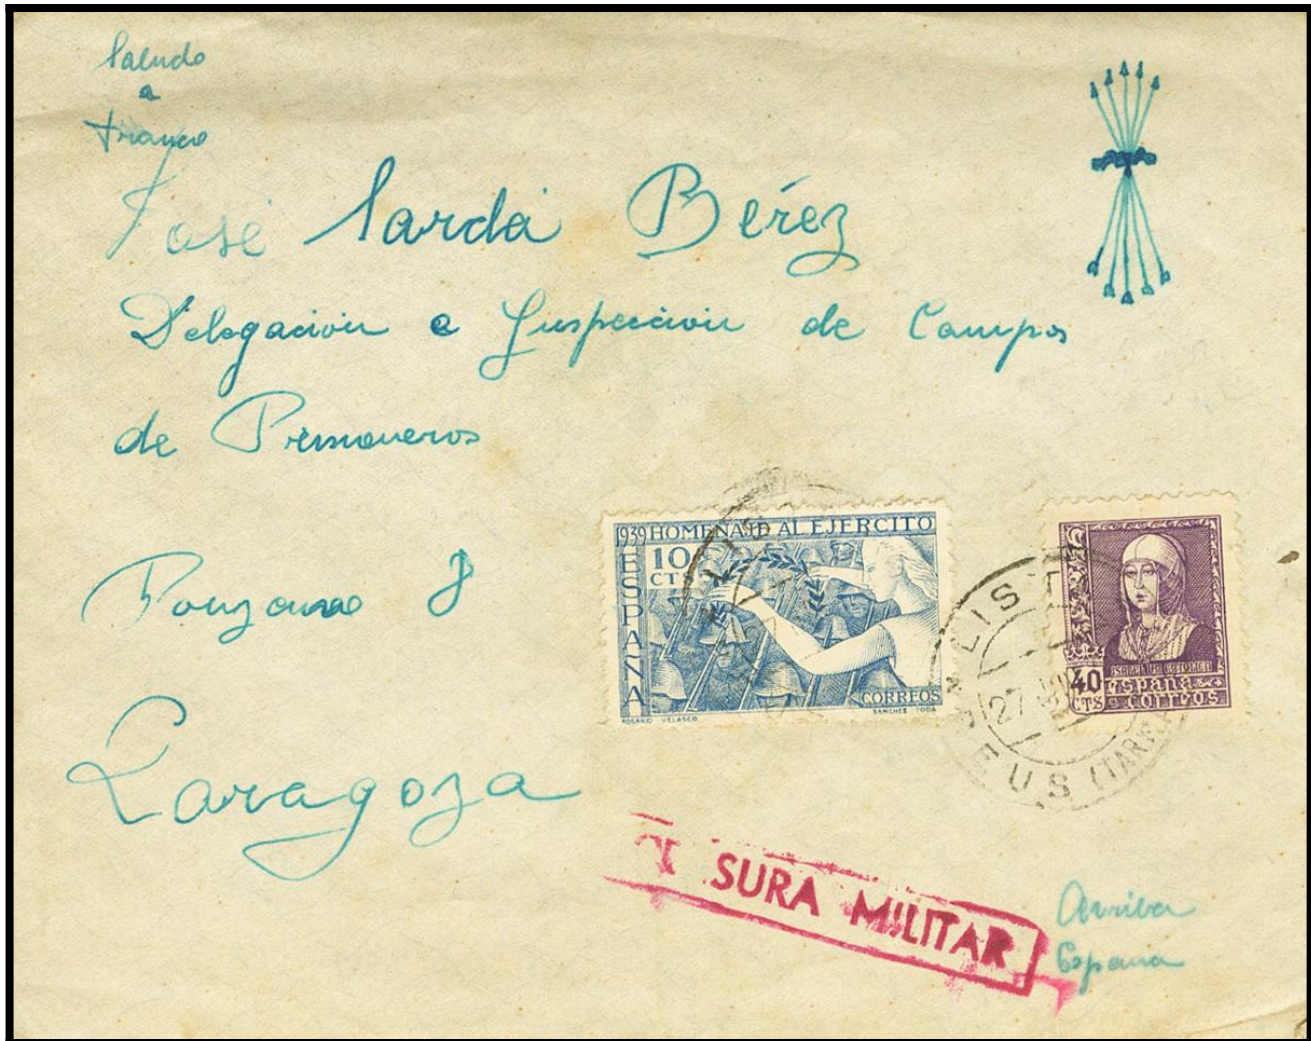 Saludo
a
Franco
José Sardá Bérez
Delegación e Inspección de Campos
de Prisioneros
Ponzano 8
Zaragoza
1939 HOMENAJE AL EJERCITO
ESPAÑA
10
CTS
CORREOS
ROSARIO VELASCO
SANCHEZ TODA
ISABEL LA CATOLICA
40
CTS
España
correos
LISTA
27
REUS (TARRA
SURA MILITAR
Arriba
España